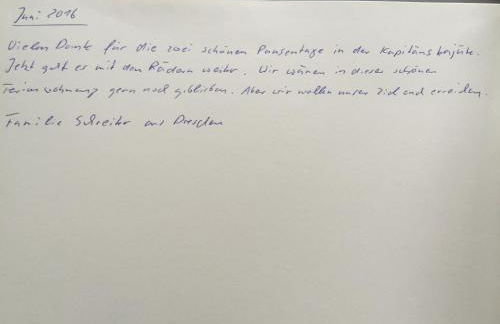 Juni 2016
Vielen Dank für die zwei schönen Pausentage in der Kapitänskajüte.
Jetzt geht es mit den Rädern weiter. Wir wären in dieser schönen
Ferienwohnung gern noch geblieben. Aber wir wollen unser Ziel noch erreichen.
Familie Schreiber aus Dresden